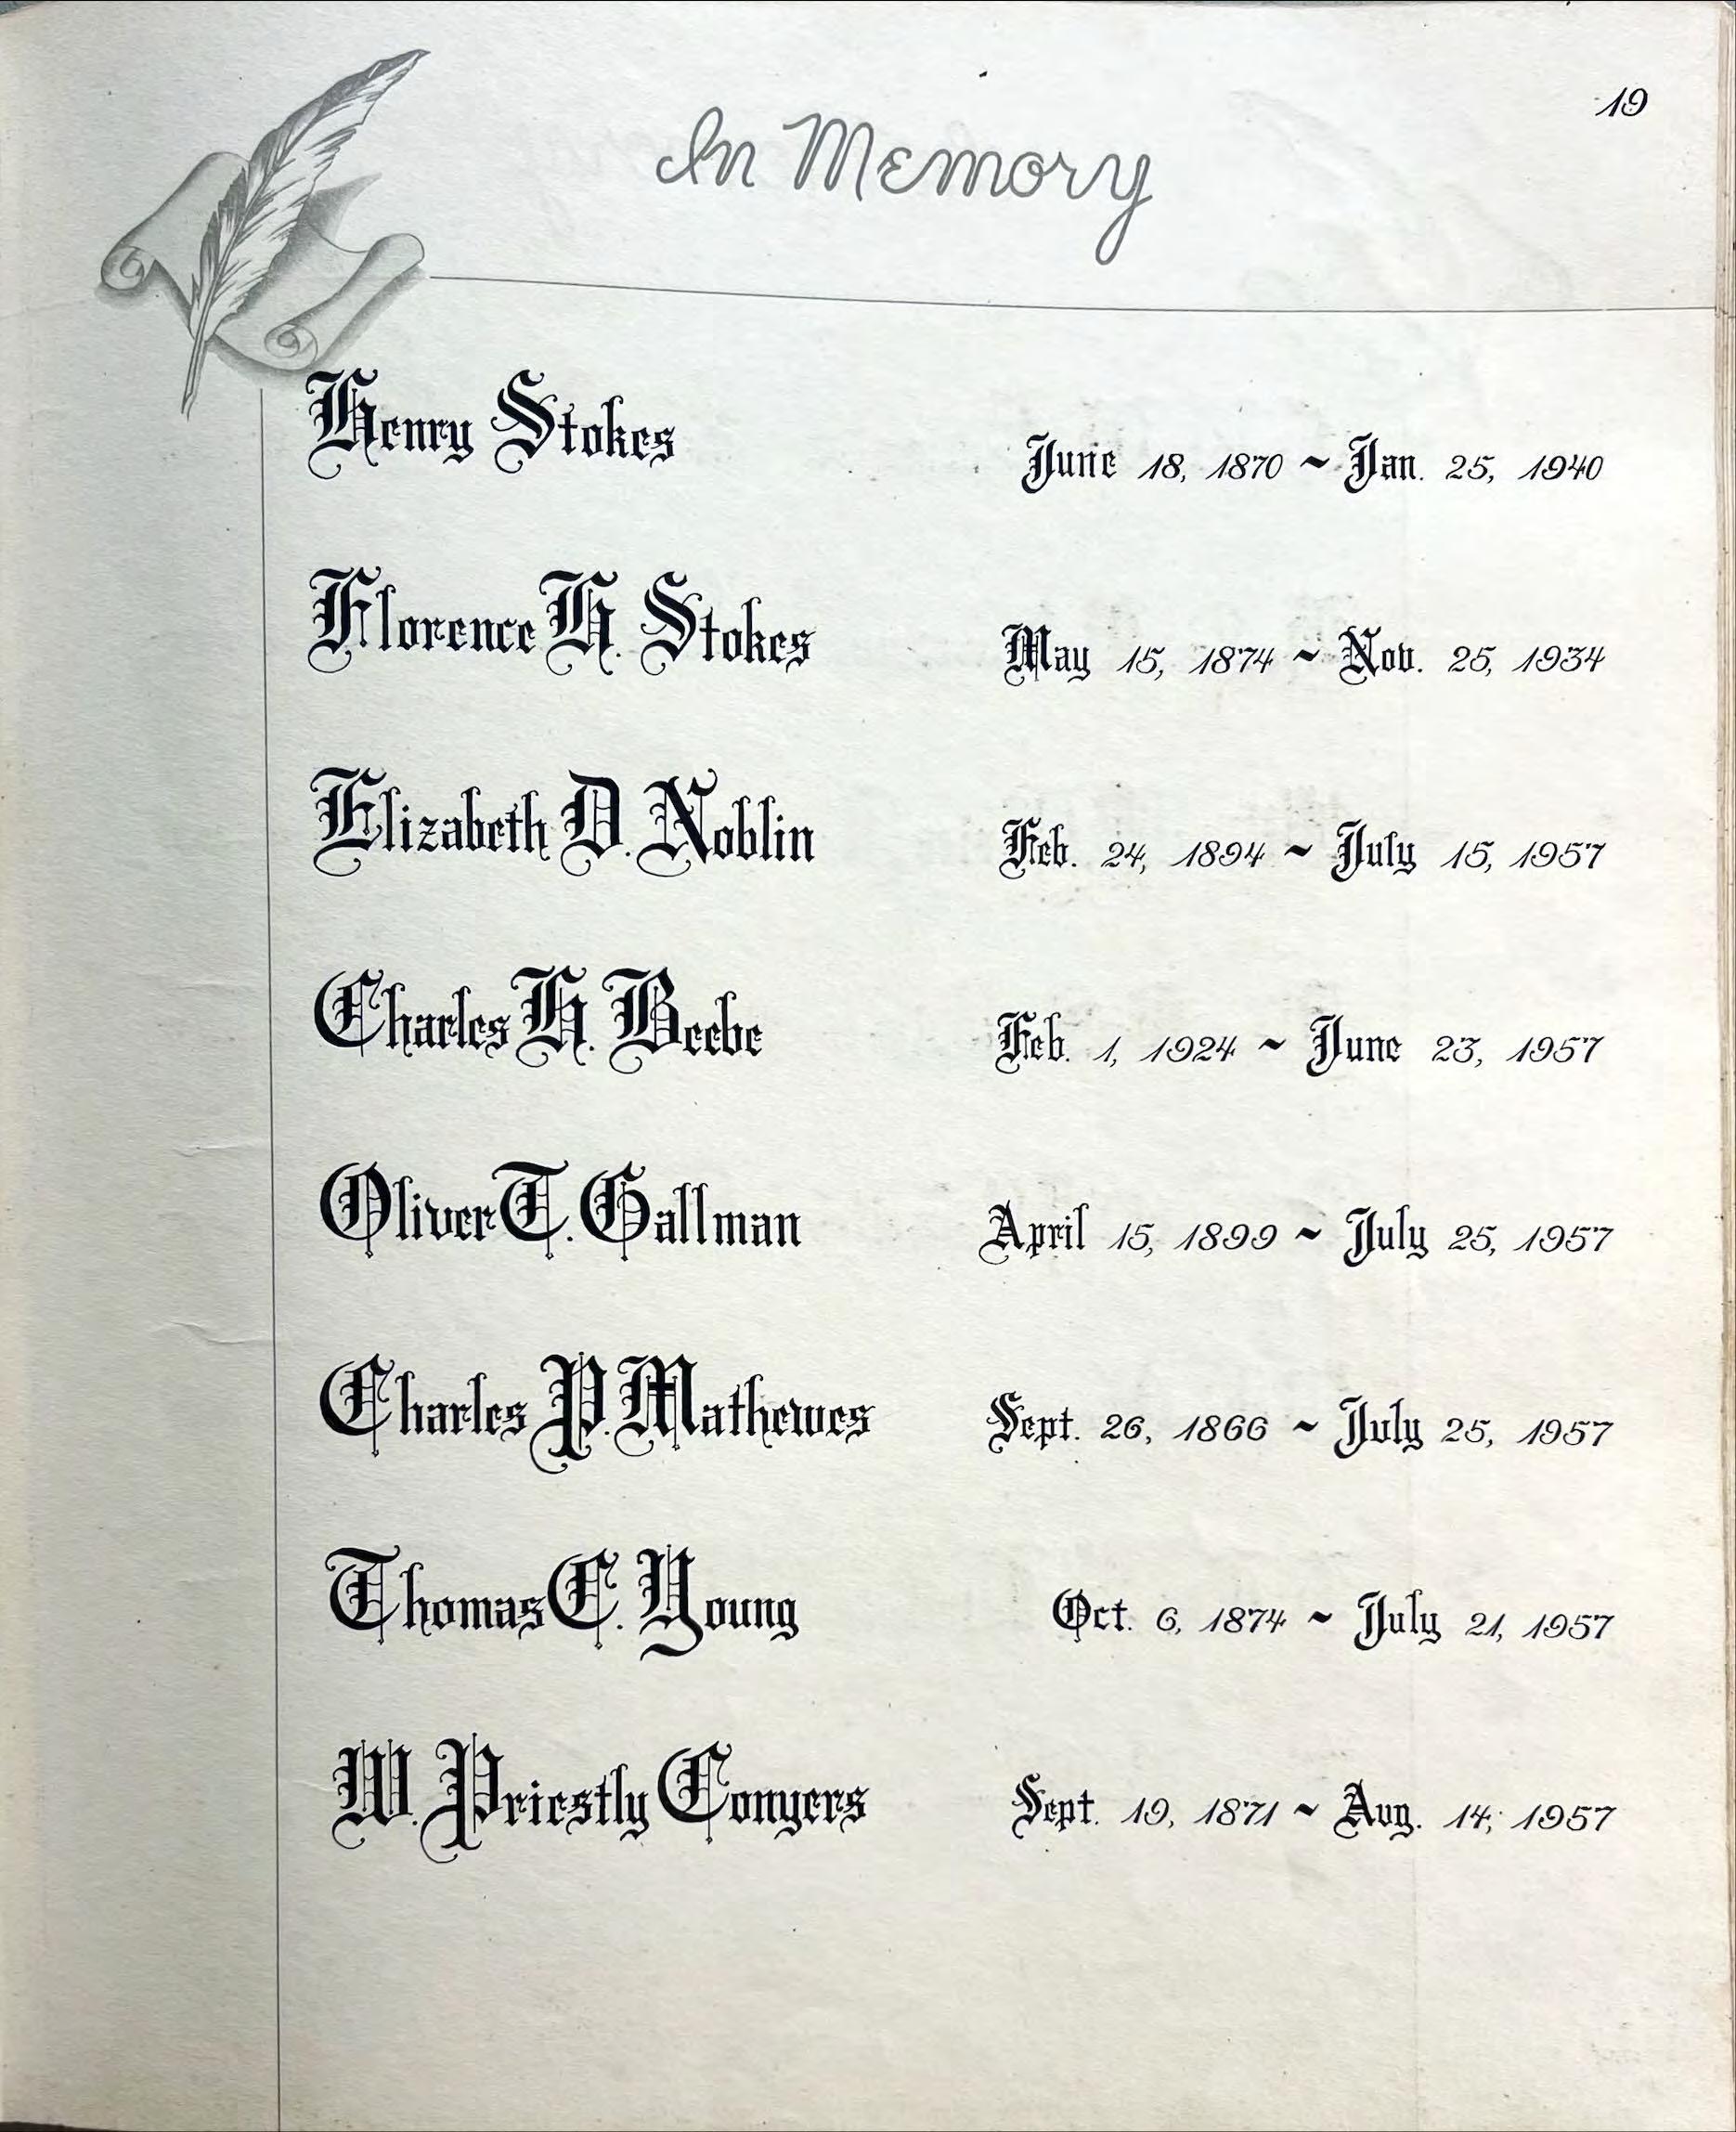 19
In Memory
Henry Stokes June 18, 1870 ~ Jan. 25, 1940
Florence H. Stokes May 15, 1874 ~ Nov. 25, 1934
Elizabeth D. Noblin Feb. 24, 1894 ~ July 15, 1957
Charles H. Beebe Feb. 1, 1924 ~ June 23, 1957
Oliver T. Gallman April 15, 1899 ~ July 25, 1957
Charles P. Mathewes Sept. 26, 1866 ~ July 25, 1957
Thomas C. Young Oct. 6, 1874 ~ July 21, 1957
W. Priestly Conyers Sept. 19, 1871 ~ Aug. 14, 1957